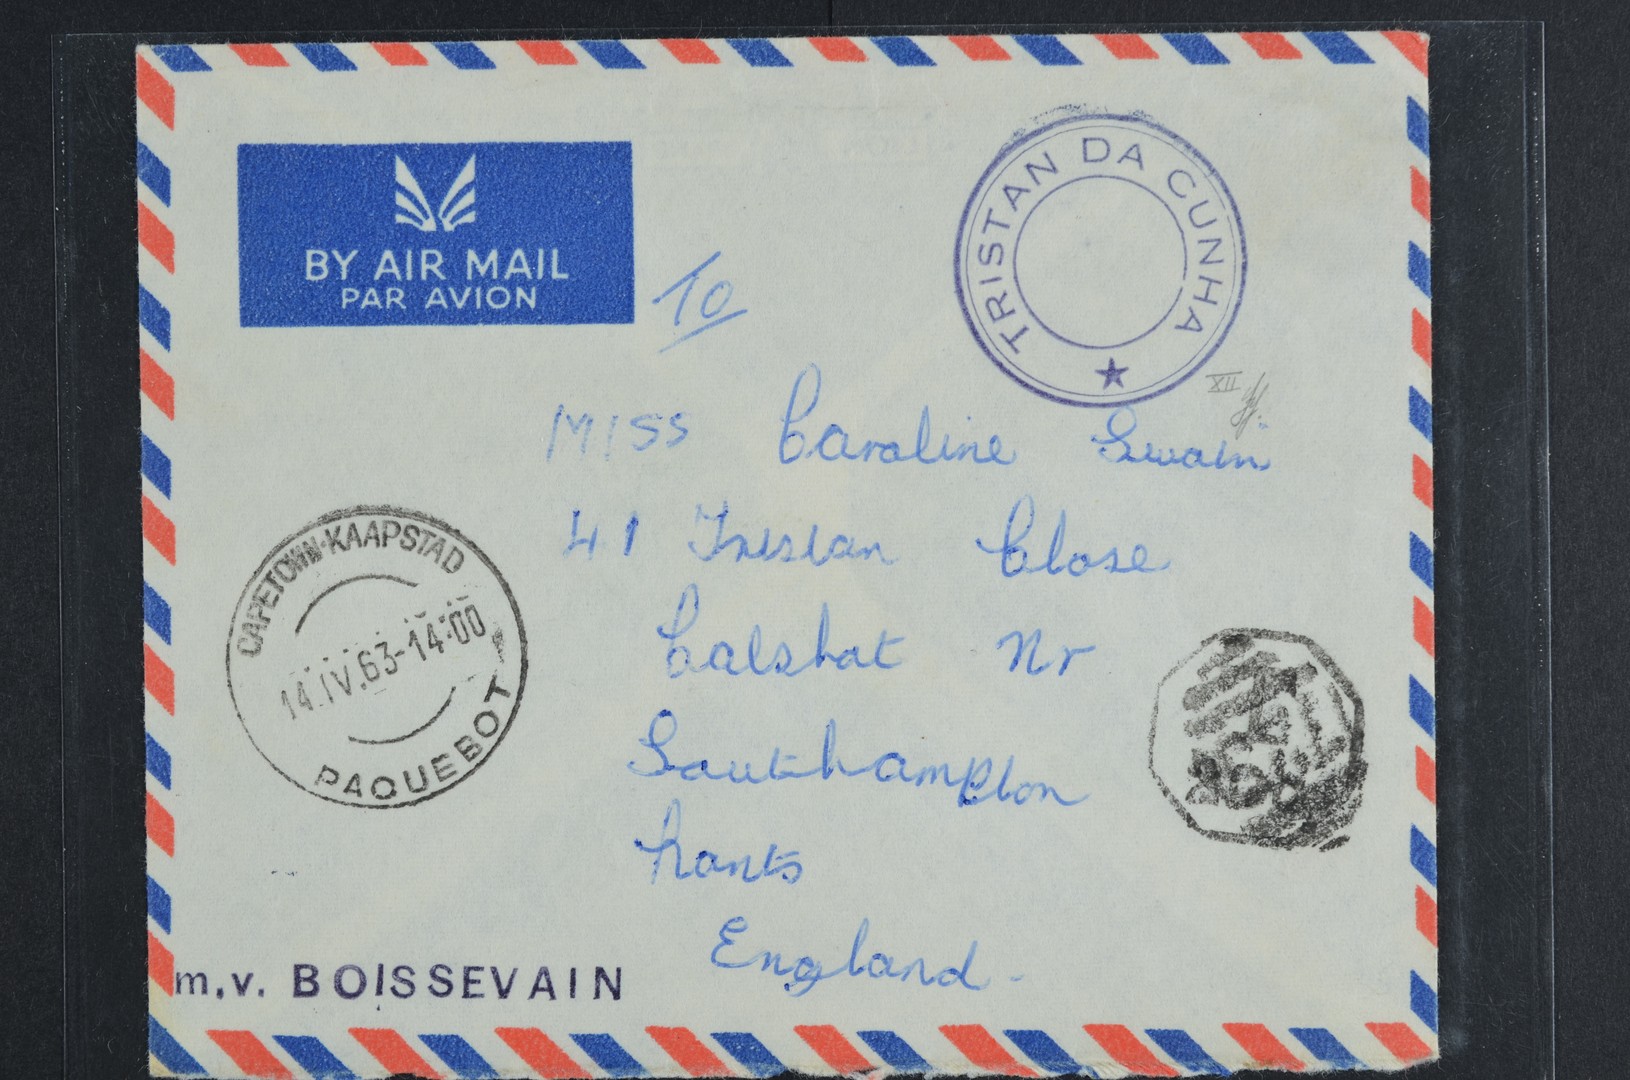 BY AIR MAIL
PAR AVION
TRISTAN DA CUNHA
To
XII
MISS Caroline Swain
41 Tristan Close
Calshot Nr
Southampton
hants
England.
CAPETOWN·KAAPSTAD
14.IV.63-14·00
PAQUEBOT
m.v. BOISSEVAIN